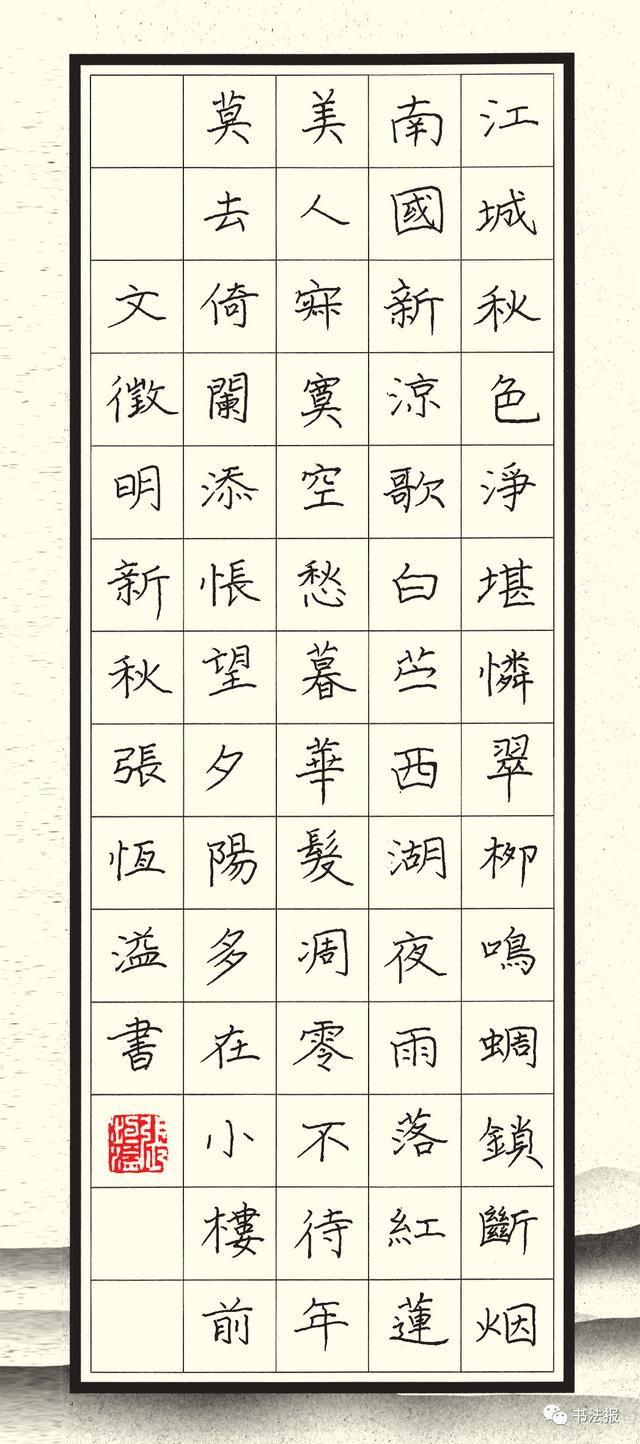 江城秋色淨堪憐翠栁鳴蜩鎖斷烟
南國新涼歌白苎西湖夜雨落紅蓮
美人寂寞空愁暮華髮凋零不待年
莫去倚闌添悵望夕陽多在小樓前
文徵明新秋張恆溢書
張恆溢
书法报